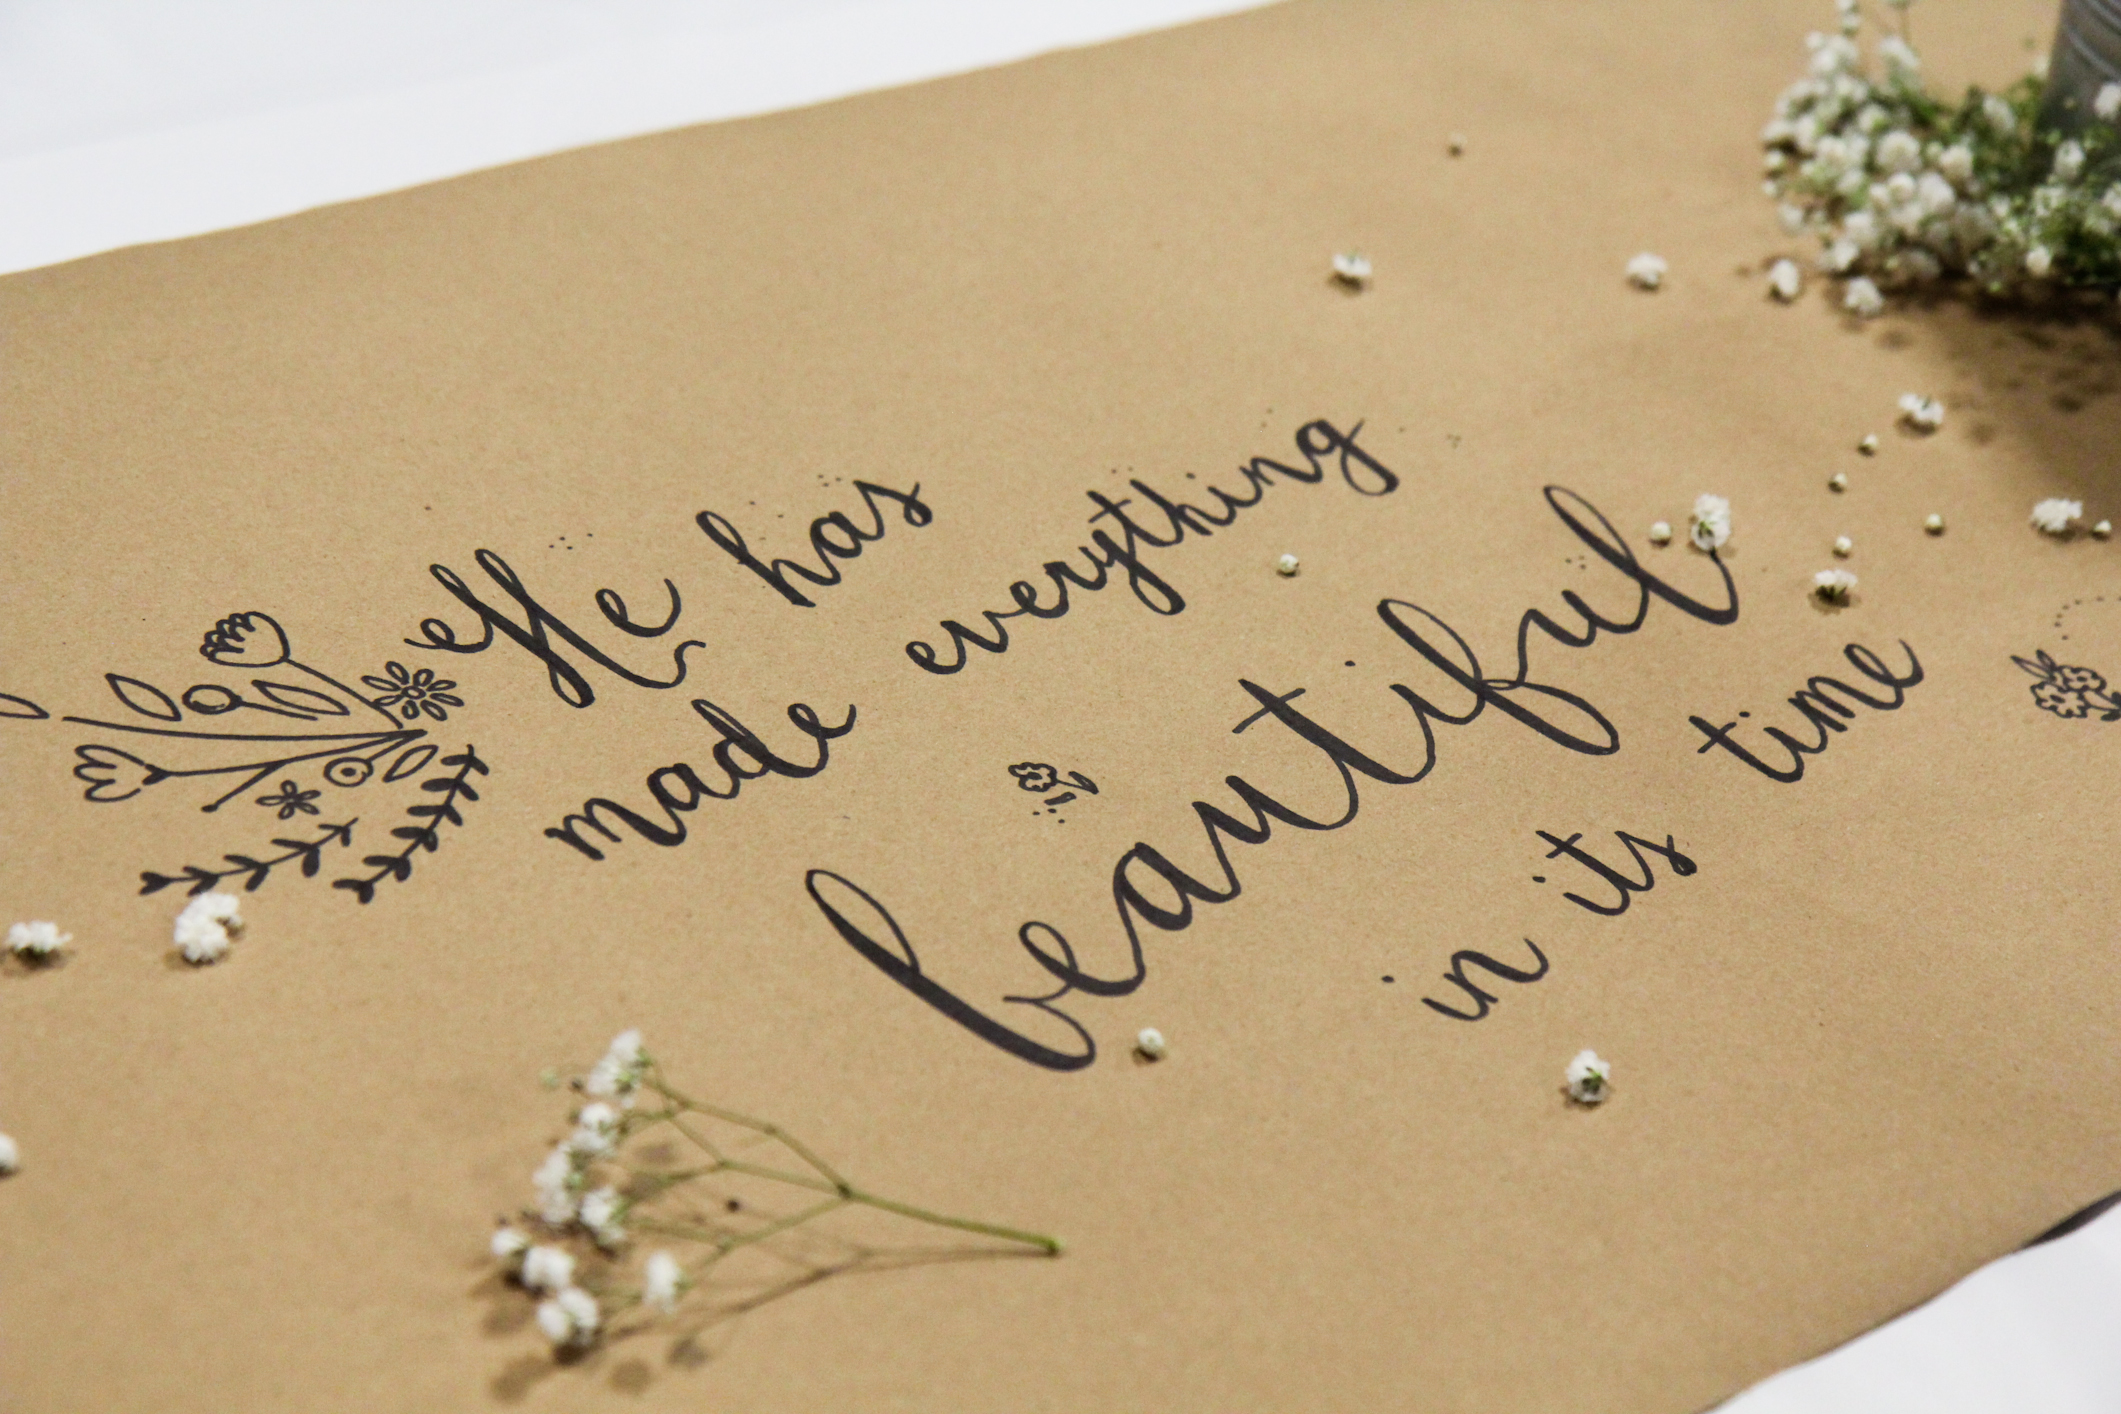 He has
made everything
beautiful
in its time